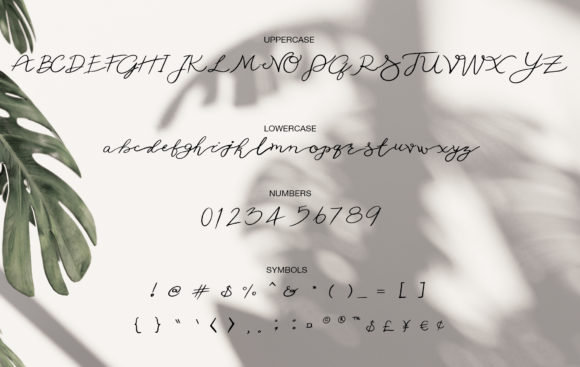 UPPERCASE
ABCDEFGHIJKLMNOPQRSTUVWXYZ
LOWERCASE
abcdefghijklmnopqrstuvwxyz
NUMBERS
0123456789
SYMBOLS
! @ # $ % ^ & * ( ) _ = [ ]
{ } " ' < > , . ; : ¤ © ® ™ $ £ ¥ € ¢